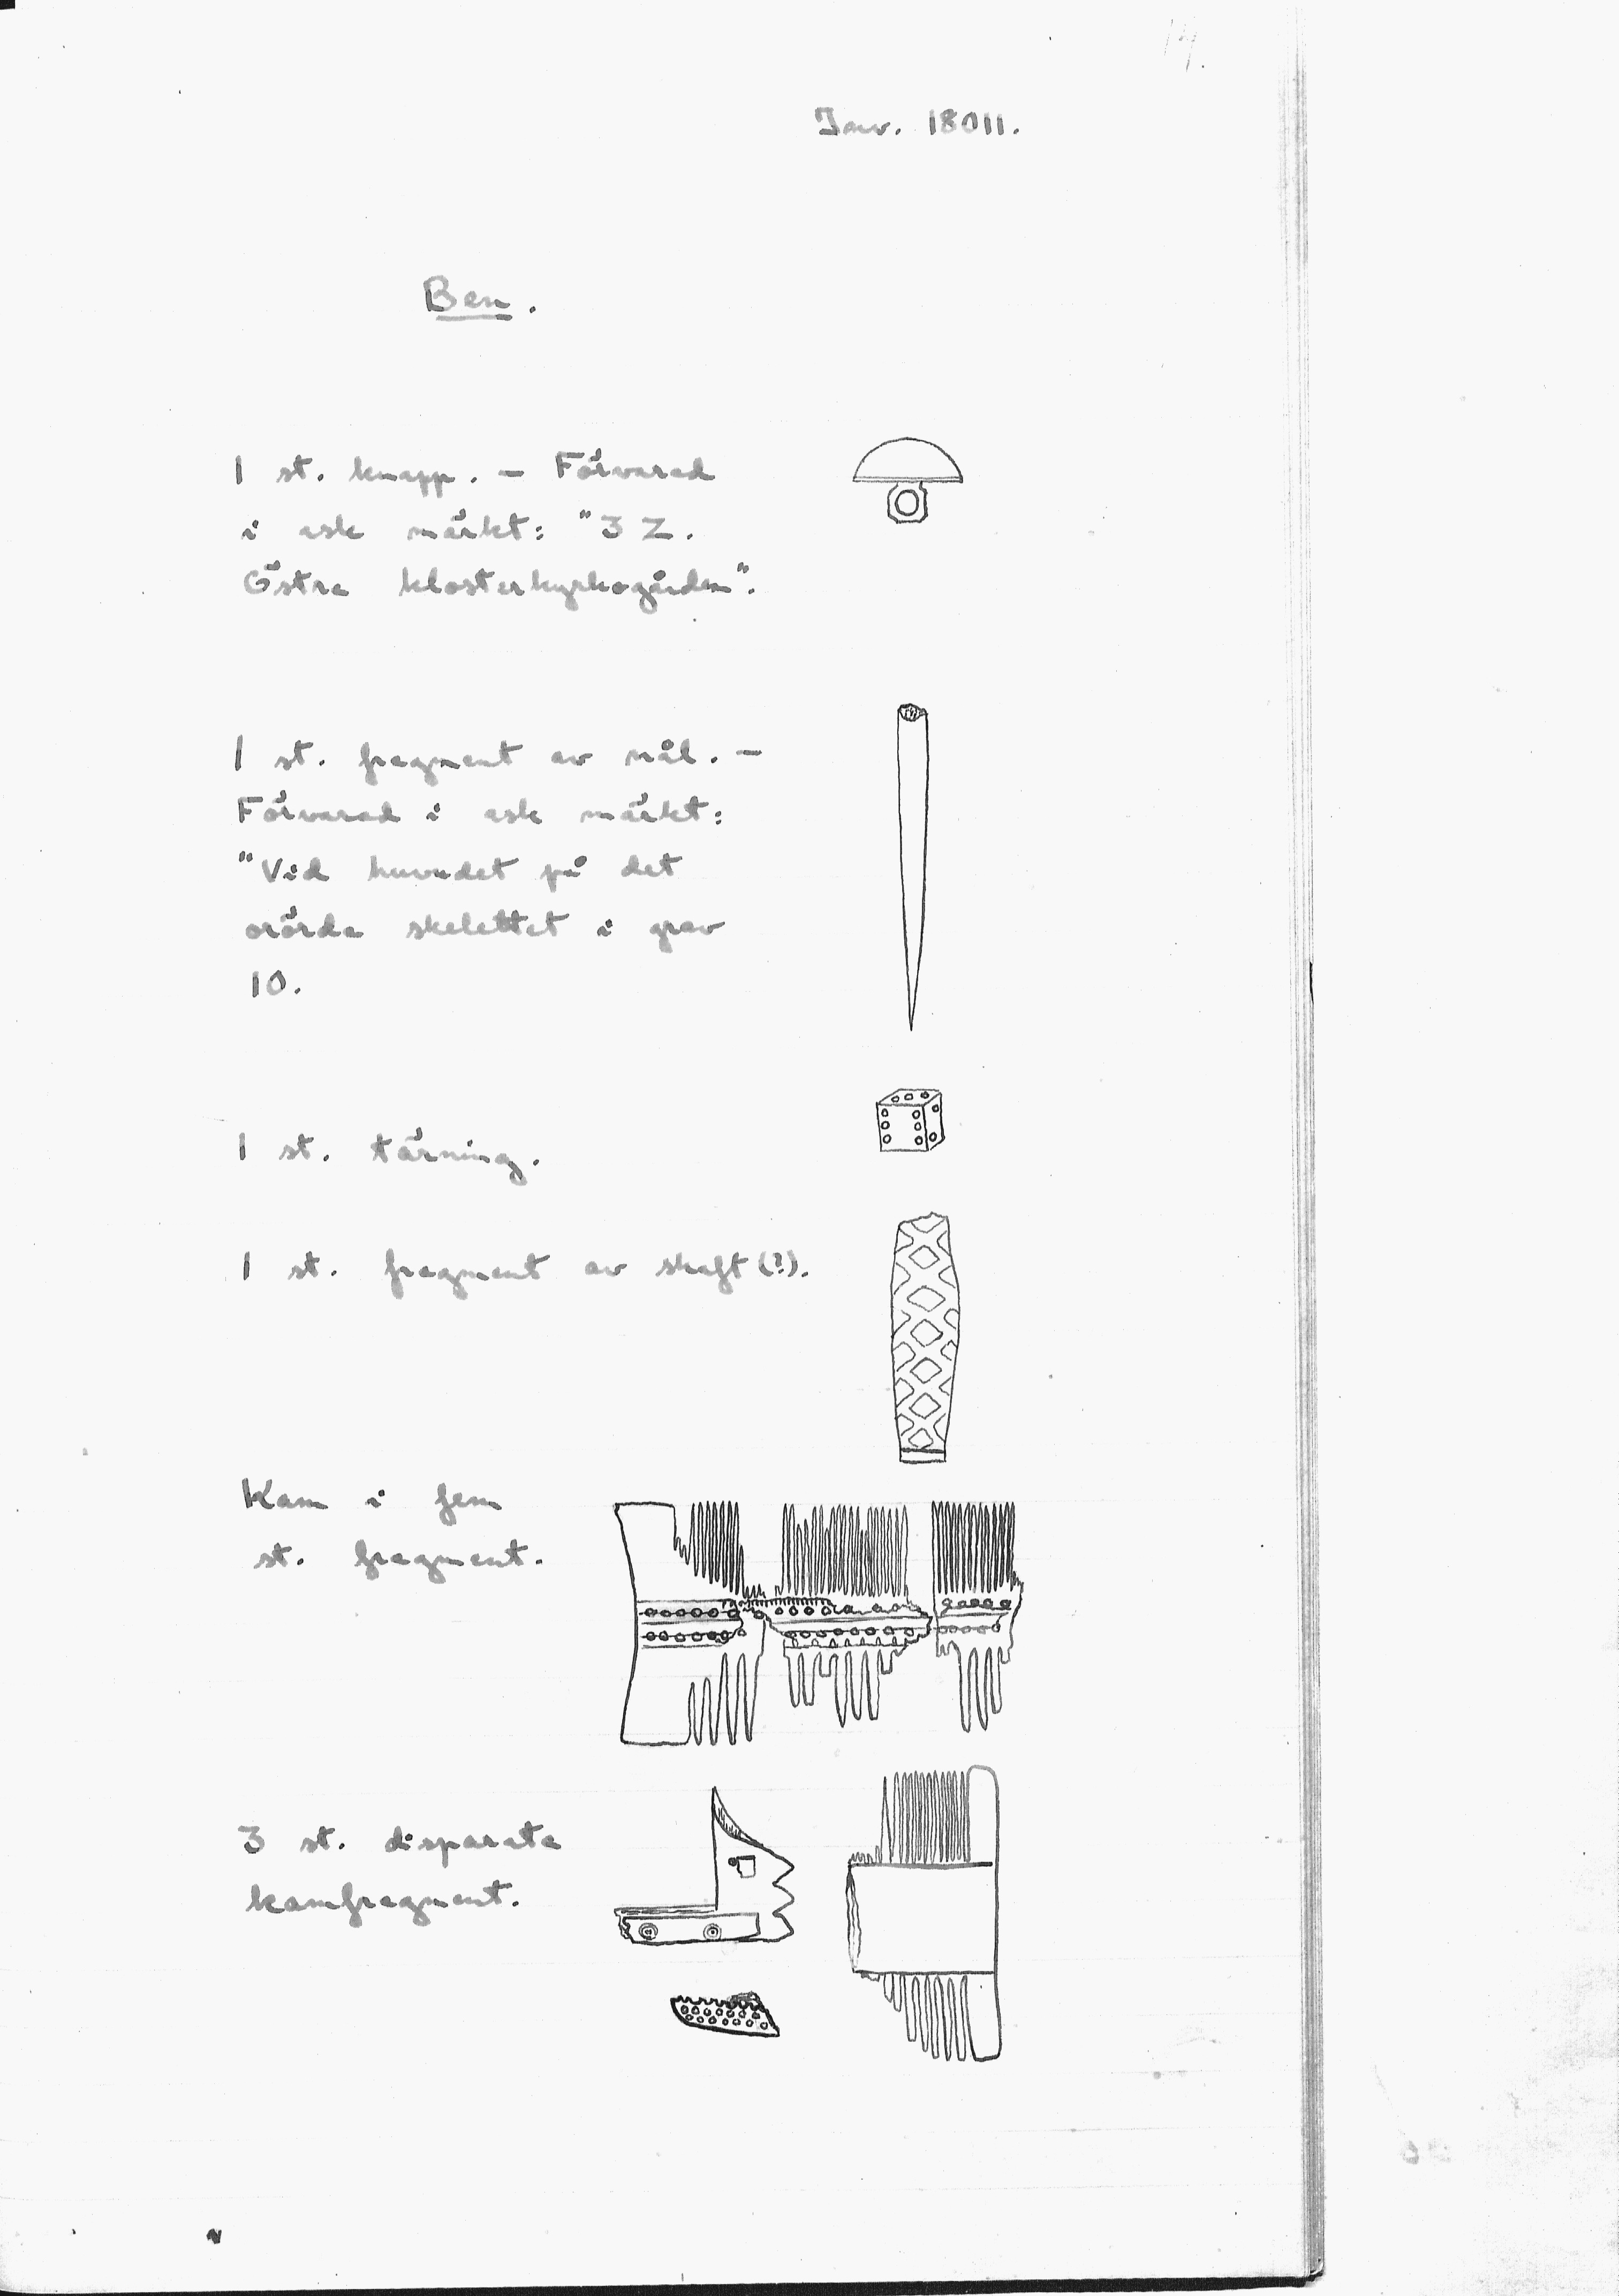 14.
Inv. 18011.
Ben.
1 st. knapp. – Förvarad
i ask märkt: "3 Z.
Östra klosterkyrkogården".
1 st. fragment av nål. –
Förvarad i ask märkt:
"Vid huvudet på det
orörda skelettet i grav
10.
1 st. tärning.
1 st. fragment av skaft (?).
Kam i fem
st. fragment.
3 st. disparata
kamfragment.